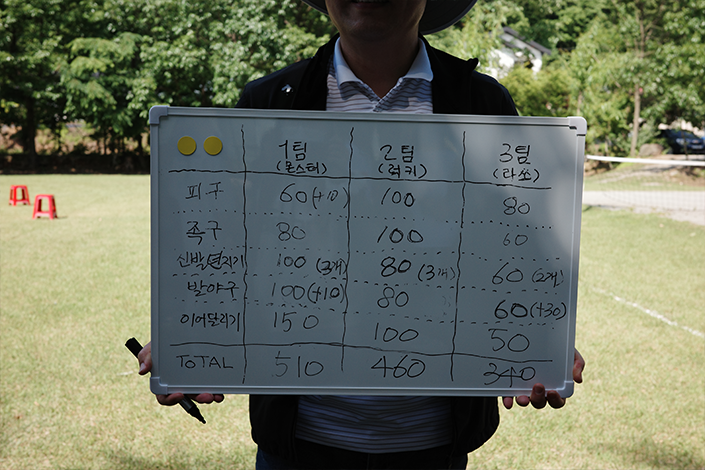 1팀 2팀 3팀
(몬스터) (럭키) (라쏘)
피구 60(+10) 100 80
족구 80 100 60
신발던지기 100 (3개) 80 (3개) 60 (2개)
발야구 100(+10) 80 60(+30)
이어달리기 150 100 50
ToTAL 510 460 340